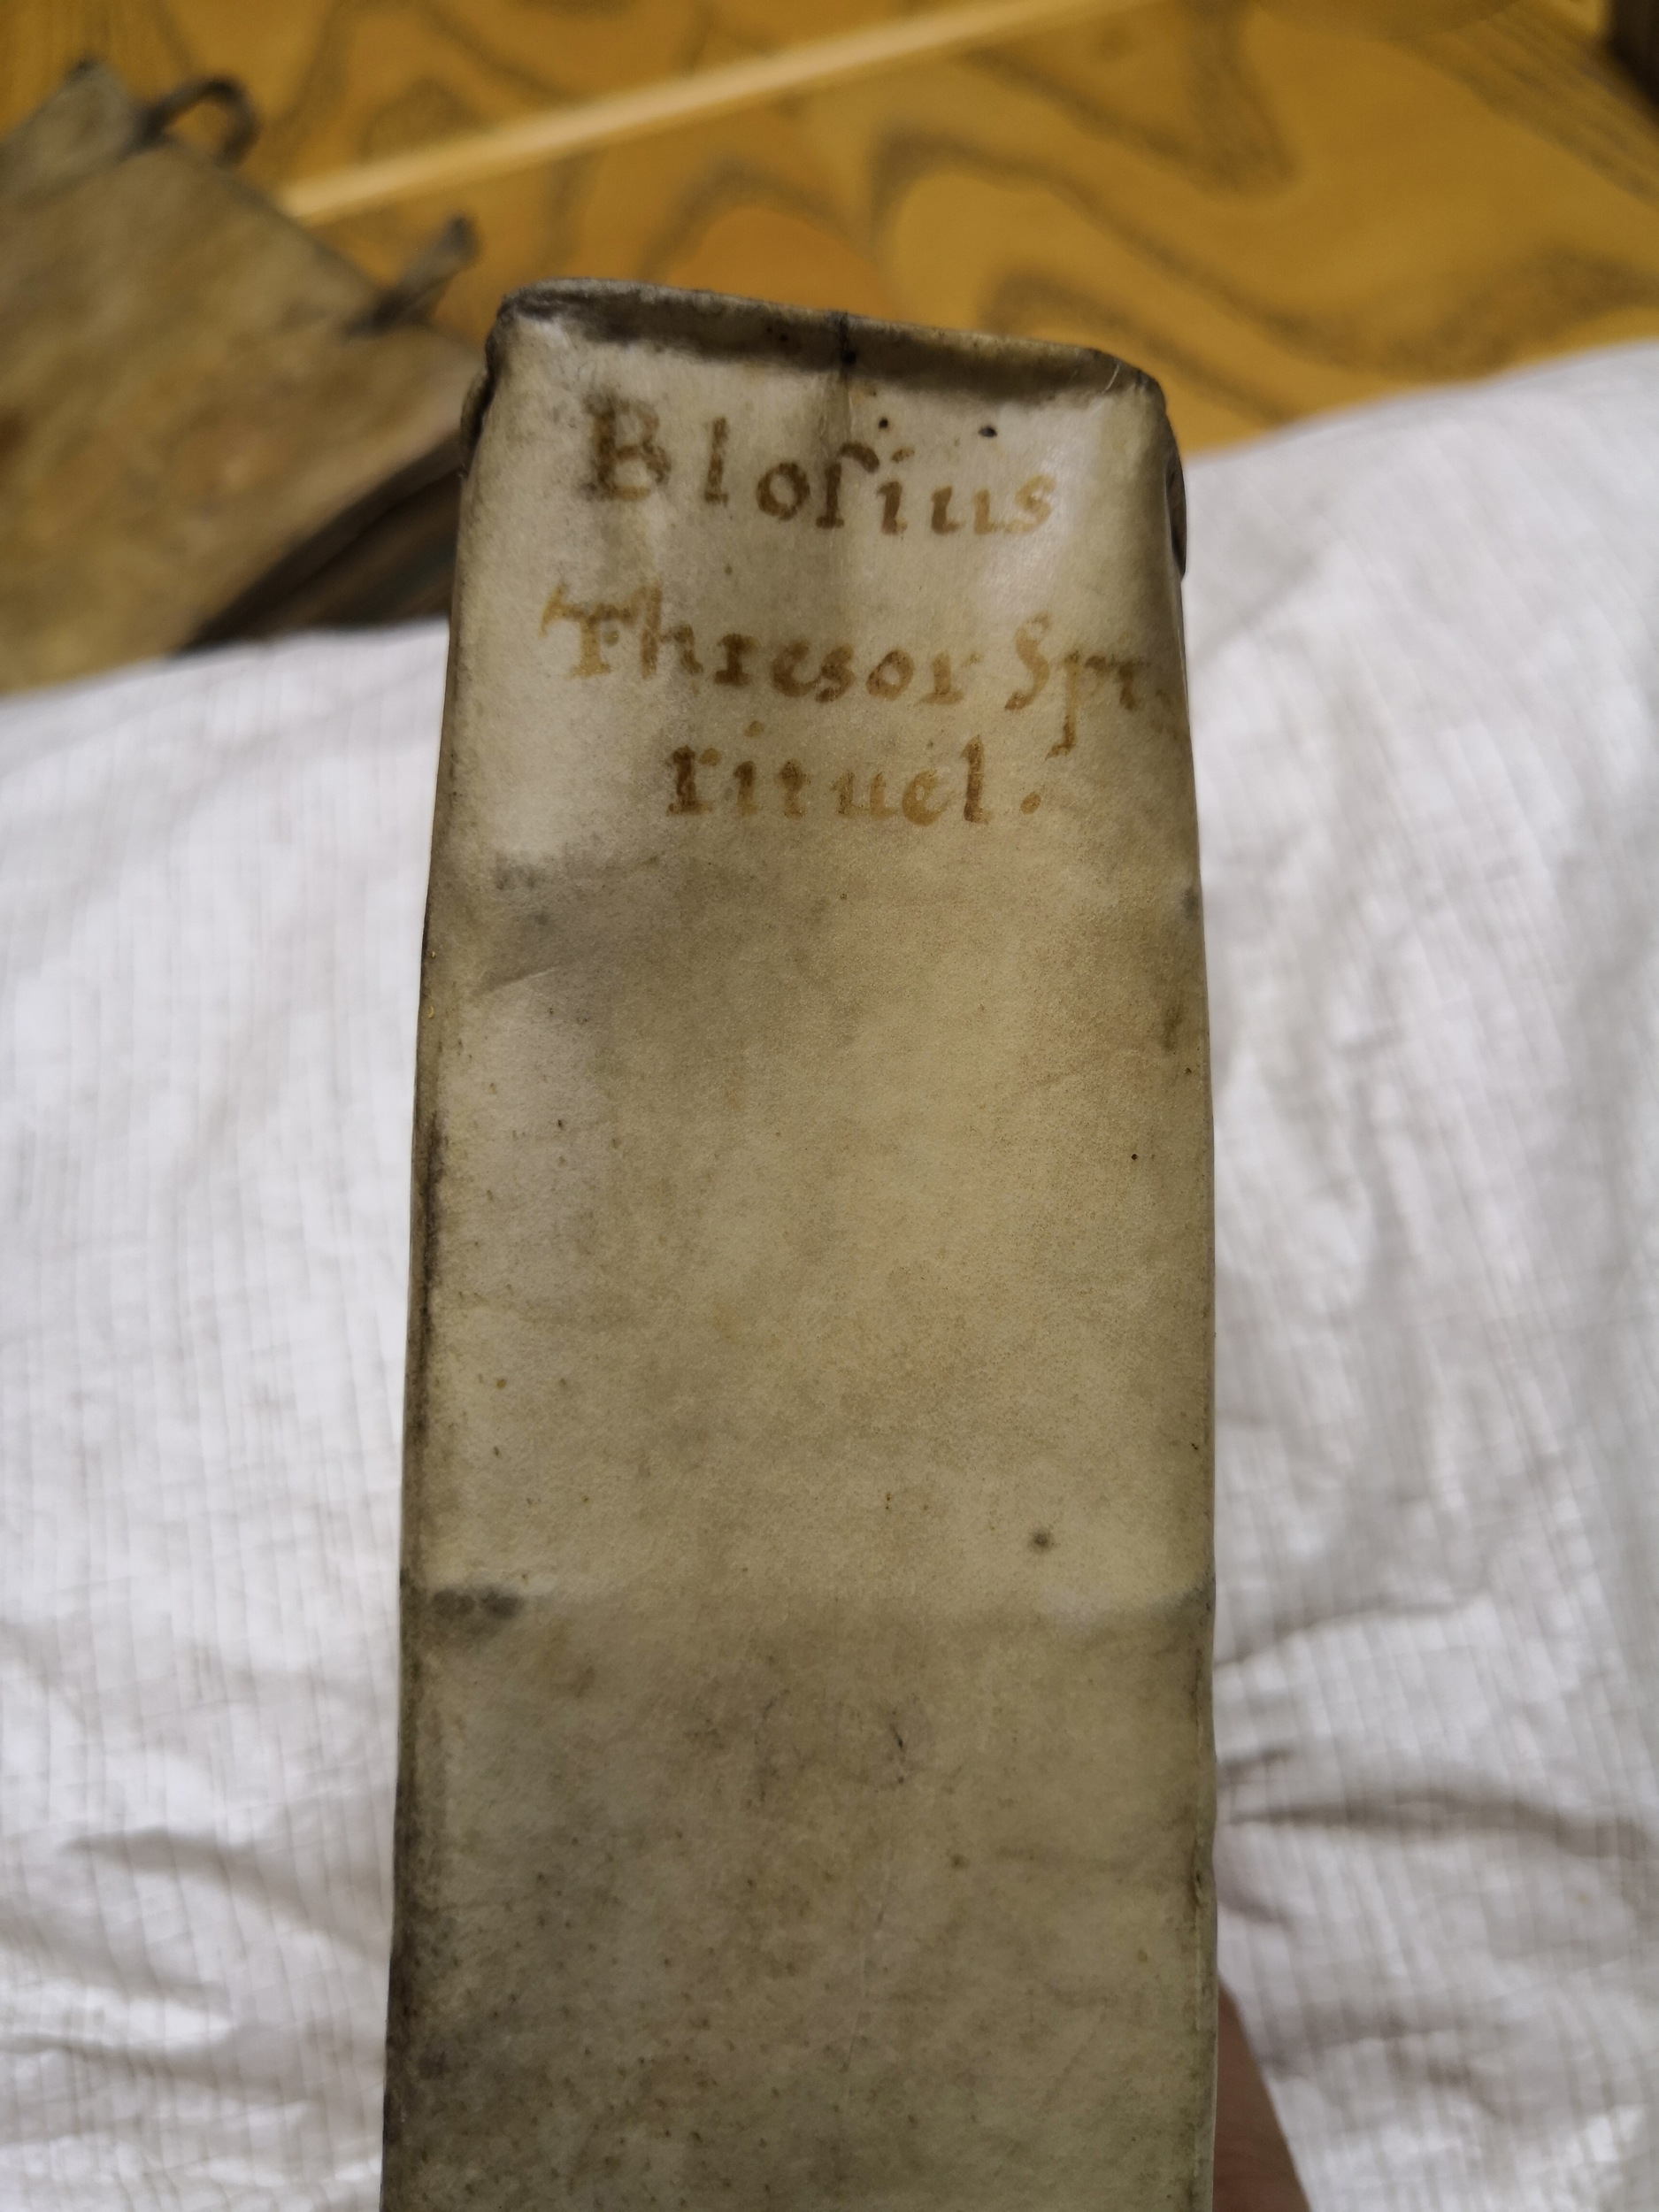 Bloſius
Thresor Spi-
rituel.